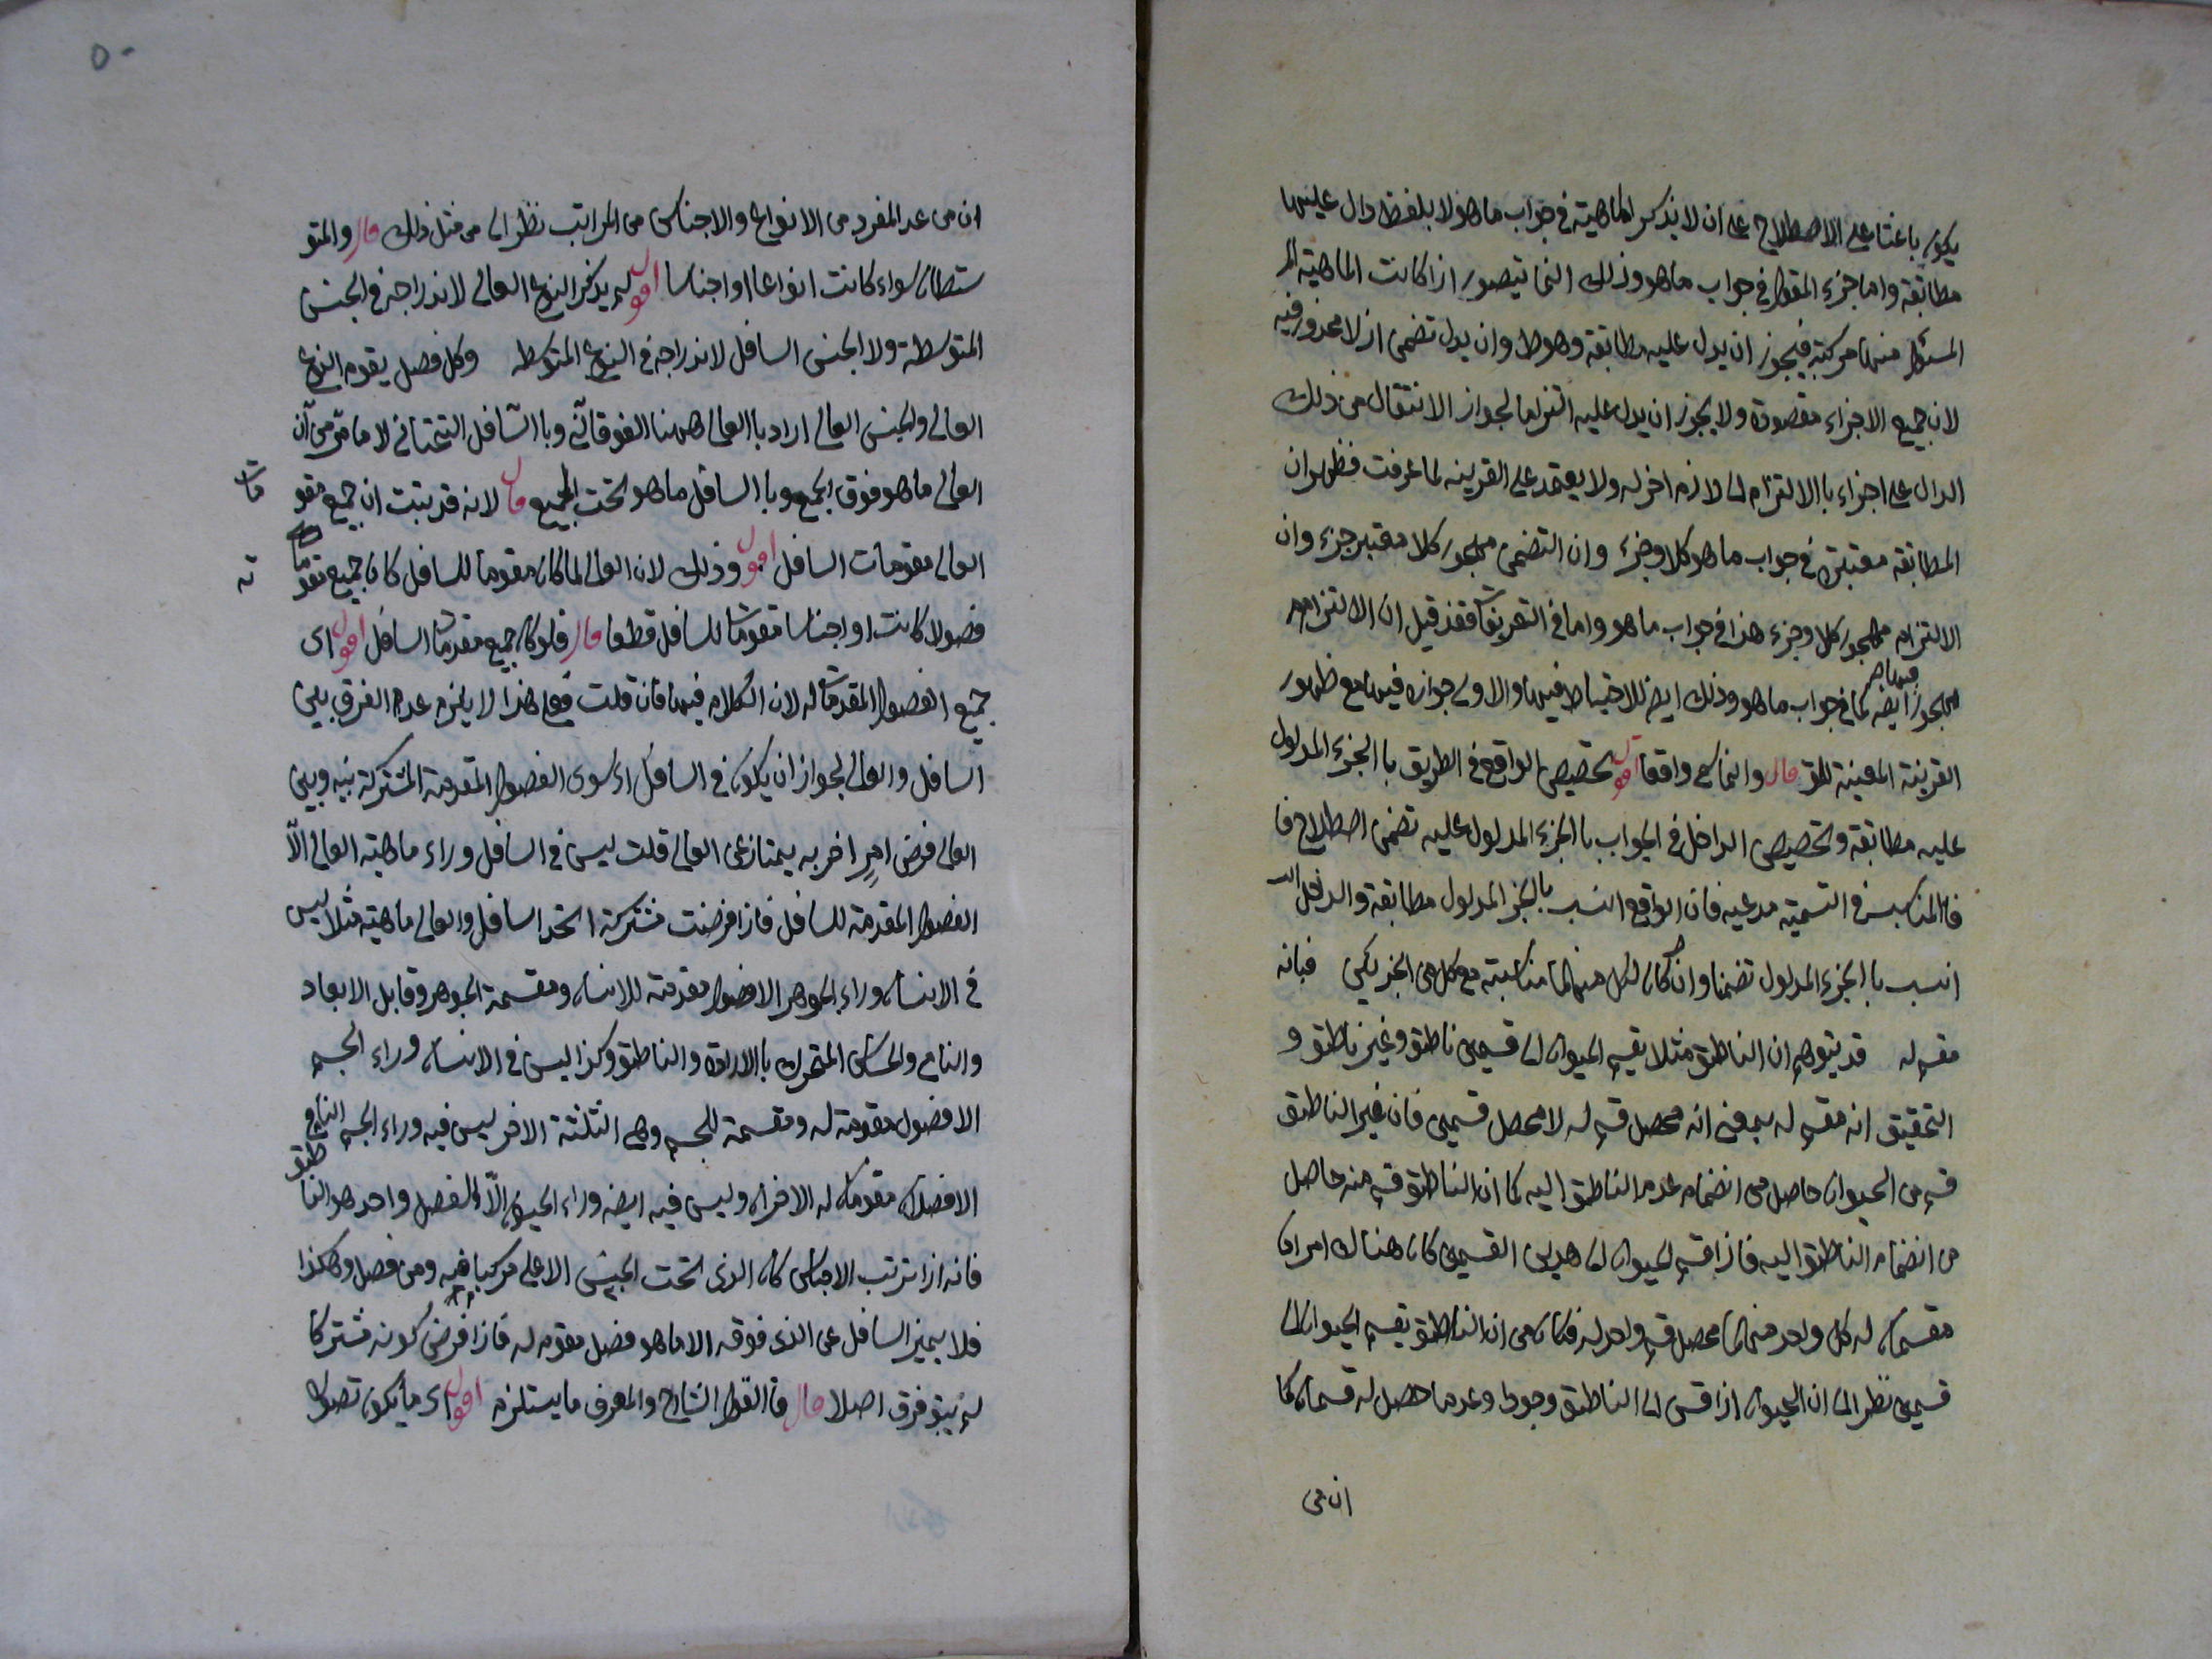 يكون باعثا على الاصطلاح على ان لا يذكر الماهية في جواب ما هو الا بلفظ دال عليها
مطابقة واما جزء المقول في جواب ما هو وذلك انما يتصور اذا كانت الماهية
المسئول عنها مركبة فيجوز ان يدل عليه مطابقة وهو ط وان يدل تضمن اذ لا محذور فيه
لان جميع الاجزاء مقصودة ولا يجوز ان يدل عليه التزاما لجواز الانتقال من ذلك
الدال على اجزاء باالالتزام الى لازم اخر له ولا يعتمد على القرينه لما عرفت فظهر ان
المطابقة معتبرة في جواب ما هو كلا وجزء وان التضمن مهجور كلا معتبر جزء وان
الالتزام مهجور كلا وجزء هذا في جواب ما هو واما في التعريفات فقد قيل ان الالتزام
مهجور فيها ايضه كما في جواب ما هو وذلك ايضه للاحتياط فيها والاولى جوازه فيها مع ظهور
القرينة المعينة للمق قال وانما سمى واقعا اقول تخصيص الواقع في الطريق باالجزء المدلول
عليه مطابقة وتخصيص الداخل في الجواب باالجزء المدلول عليه تضمن اصطلاح فا
فاالمناسبة في التسمية مرعيه فان الواقع انسب بالجزء المدلول مطابقة والداخل
انسب باالجزء المدلول تضمنا وان كان لكل منهما مناسبته مع كل من الجزئين فبانه
مقسم له قد يتوهم ان الناطق مثلا يقسم الحيوان الى قسمين ناطق وغير ناطق و
التحقيق انه مقسم له بمعنى انه محصل قسم له لا محصل قسمين فان غير الناطق
قسم من الحيوان حاصل من انضمام عدم الناطق اليه كما ان الناطق قسم منه حاصل
من انضمام الناطق اليه فاذا قسم الحيوان الى هذين القسمين كان هناك امران
مقسمان له كل واحد منهما محصل قسم واحد له فكان من ان الناطق يقسم الحيوان الى
قسمين نظر الى ان الحيوان اذا قس الى الناطق وجودا وعدما حصل له قسمان كما
ان من
٥٠
ان من عد المفرد من الانواع والاجناس من المراتب نظر الى من مثل ذلك قال والمتو
سطات سواء كانت انواعا او اجناسا اقول لم يذكر النوع العالى لاندراجه في الجنس
المتوسطة ولا الجنس السافل لاندراجه في النوع المتوسط وكل فصل يقوم النوع
العالى والجنس العالى اراد باالعالى ههنا الفوقانى وباالسافل التحتانى لا ما مر من ان
العالى ما هو فوق الجميع وباالسافل ما هو تحت الجميع قال لانه قد ثبت ان جميع مقو
مات
العالى مقومات السافل اقول وذلك لان العالى لما كان مقوما للسافل كان جميع مقوما
ته
فصولا كانت او اجناسا مقومات للسافل قطعا قال فلو كان جميع مقومات السافل اقول اى
جميع الفصول المقومات له لان الكلام فيها فان قلت فعلى هذا لا يلزم عدم الفرق بين
السافل والعالى لجواز ان يكون في السافل سوى الفصول المقومة المشتركة بينه وبين
العالى فرض امر اخر به يمتاز عن العالى قلت ليس في السافل وراء ماهية العالى الا
الفصول المقومة للسافل فاذا فرضت مشتركة اتحد السافل والعالى ماهية مثلا ليس
في الانسان وراء الجوهر الا فصول مقومة للانسان ومقسمة للجوهر وقابل الابعاد
والنامى والحساس المتحرك باالارادة والناطق وكذا ليس في الانسان وراء الجسم
الا فصول مقومة له ومقسمة للجسم وهى الثلثة الاخر ليس فيه وراء الجسم النامى
الا فصلان مقومان له الاخران وليس فيه ايضه وراء الحيوان الا فصل واحد هو الناطق
فانه اذا ترتب الاجناس كان الذى تحت الجنس الاعلى مركبا منه ومن فصل وهكذا
فلا يميز السافل عن الذى فوقه الا ما هو فصل مقوم له فاذا فرض كونه مشتركا
لم يبق فرق اصلا قال فاالقول الشارح والمعرف ما يستلزم اقول اى ما يكون تصوره